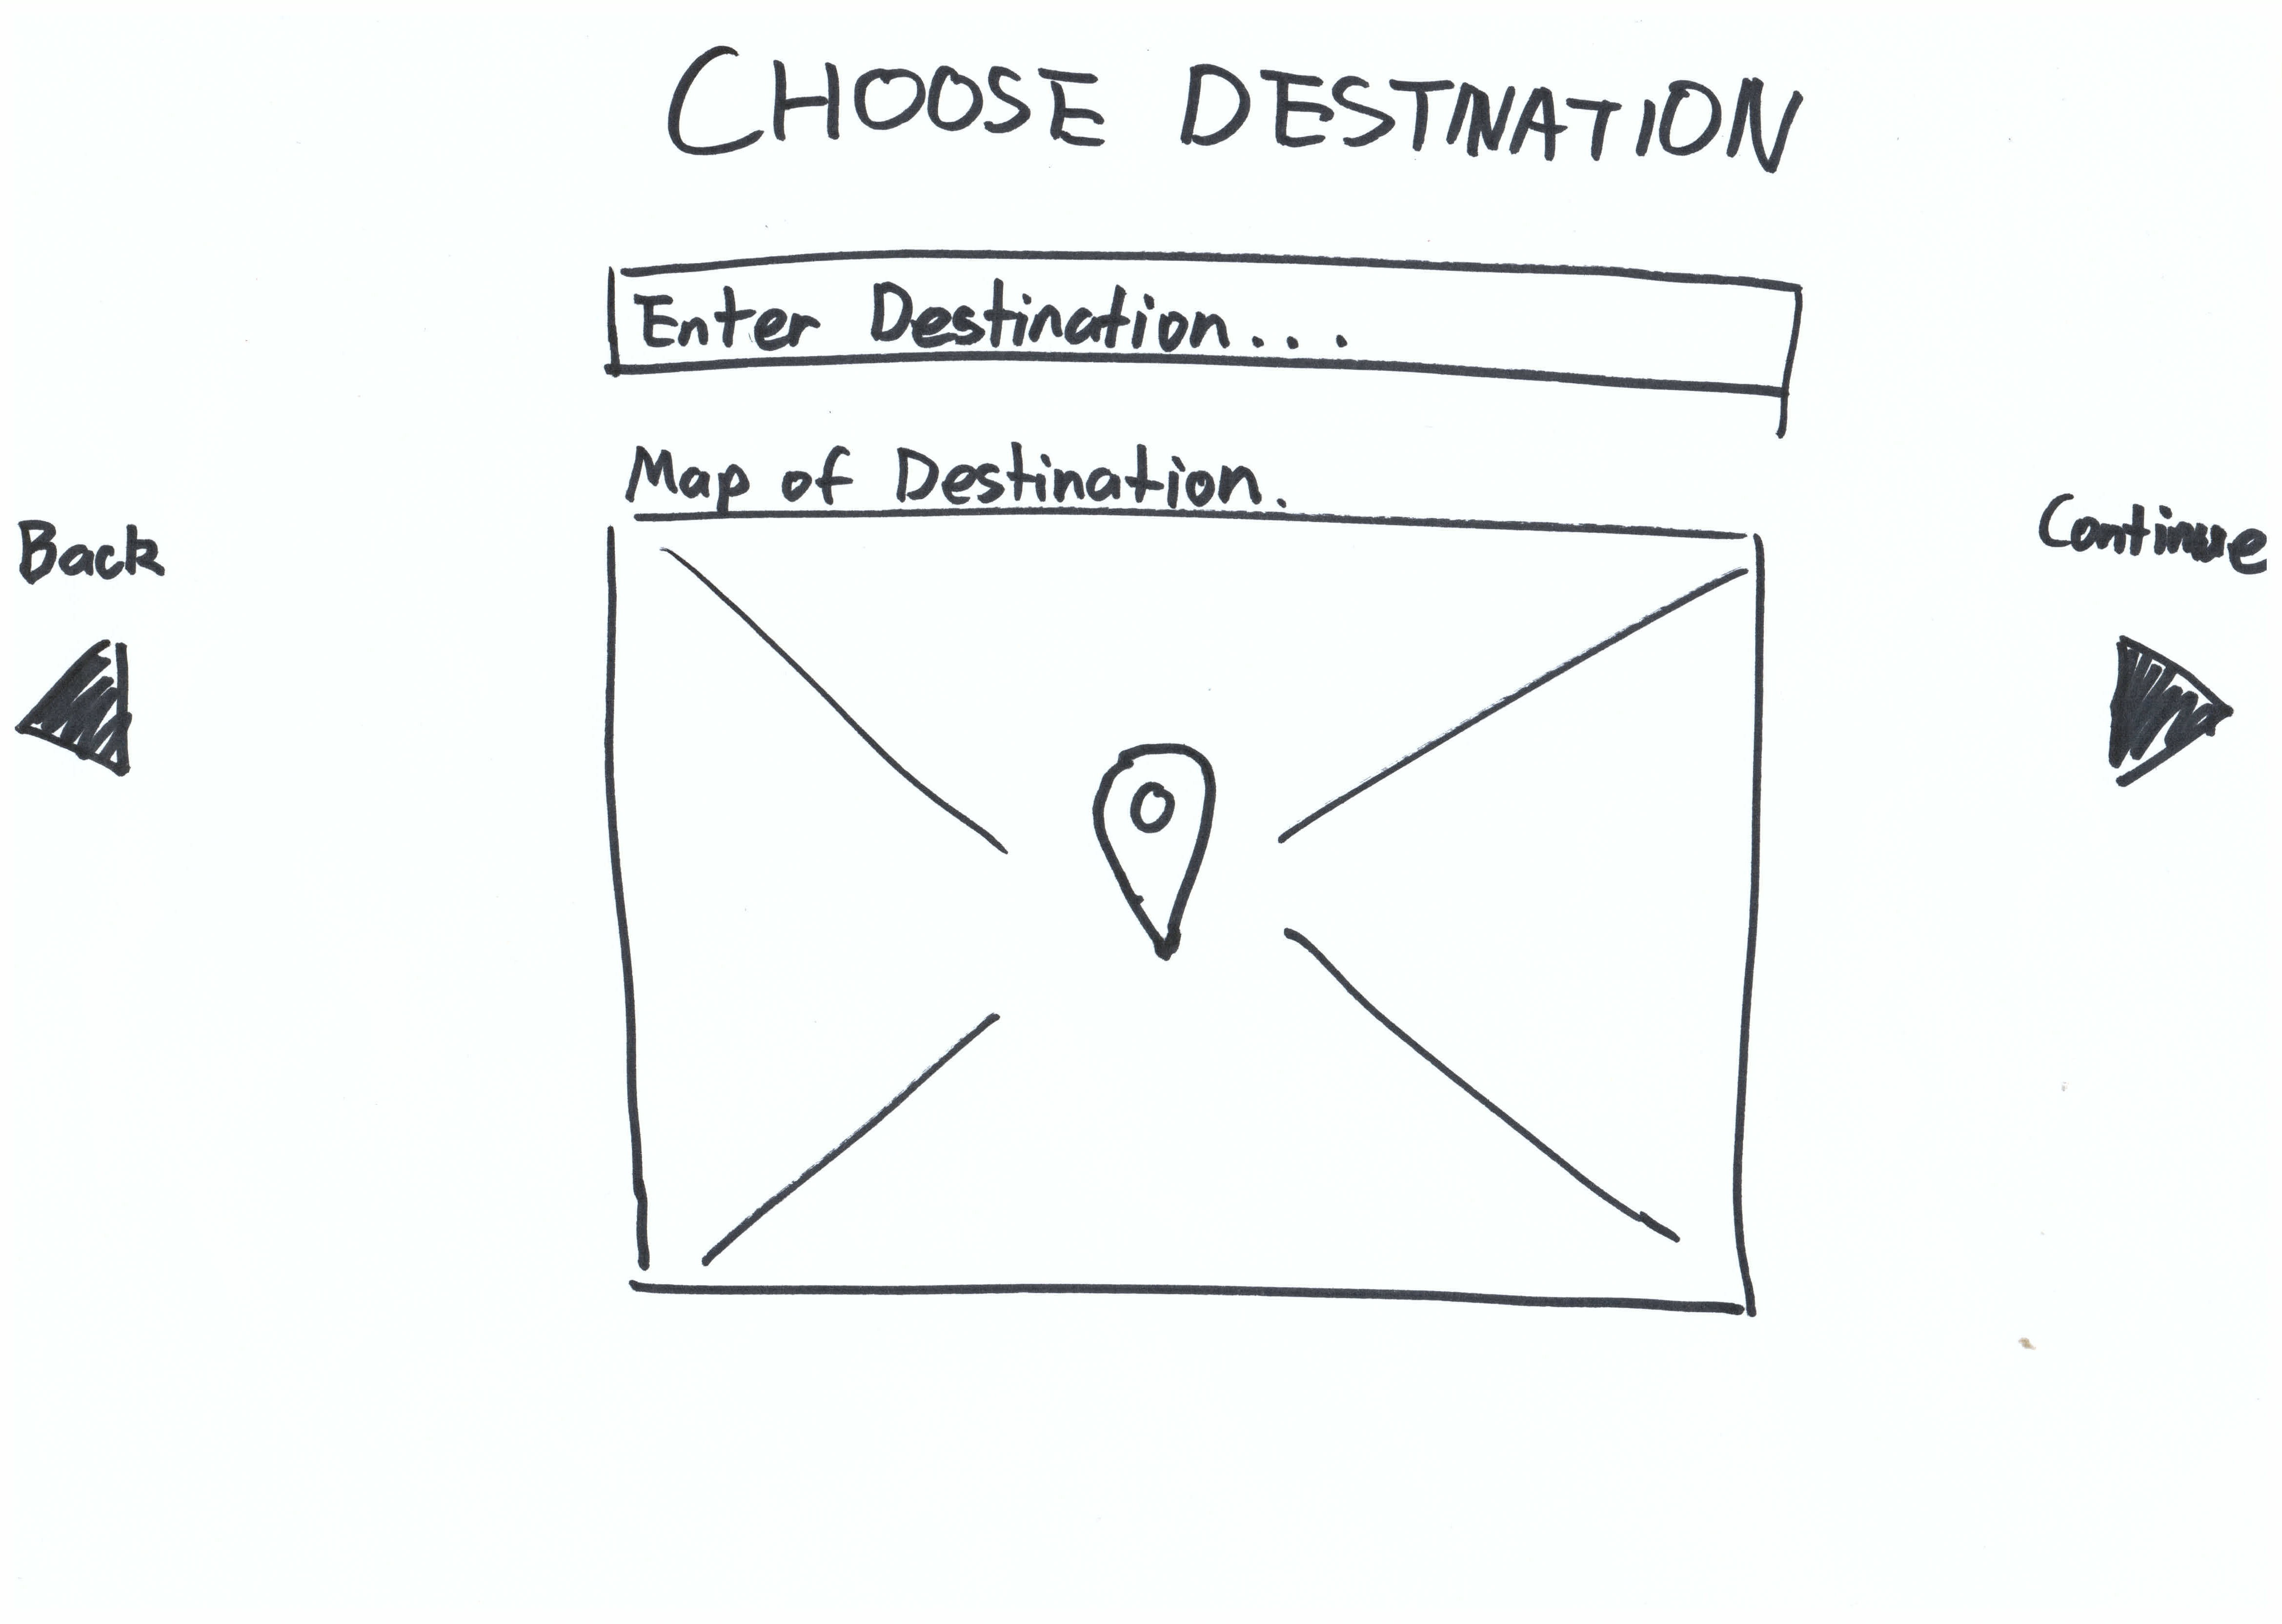 CHOOSE DESTINATION
Enter Destination....
Map of Destination.
Back
Continue